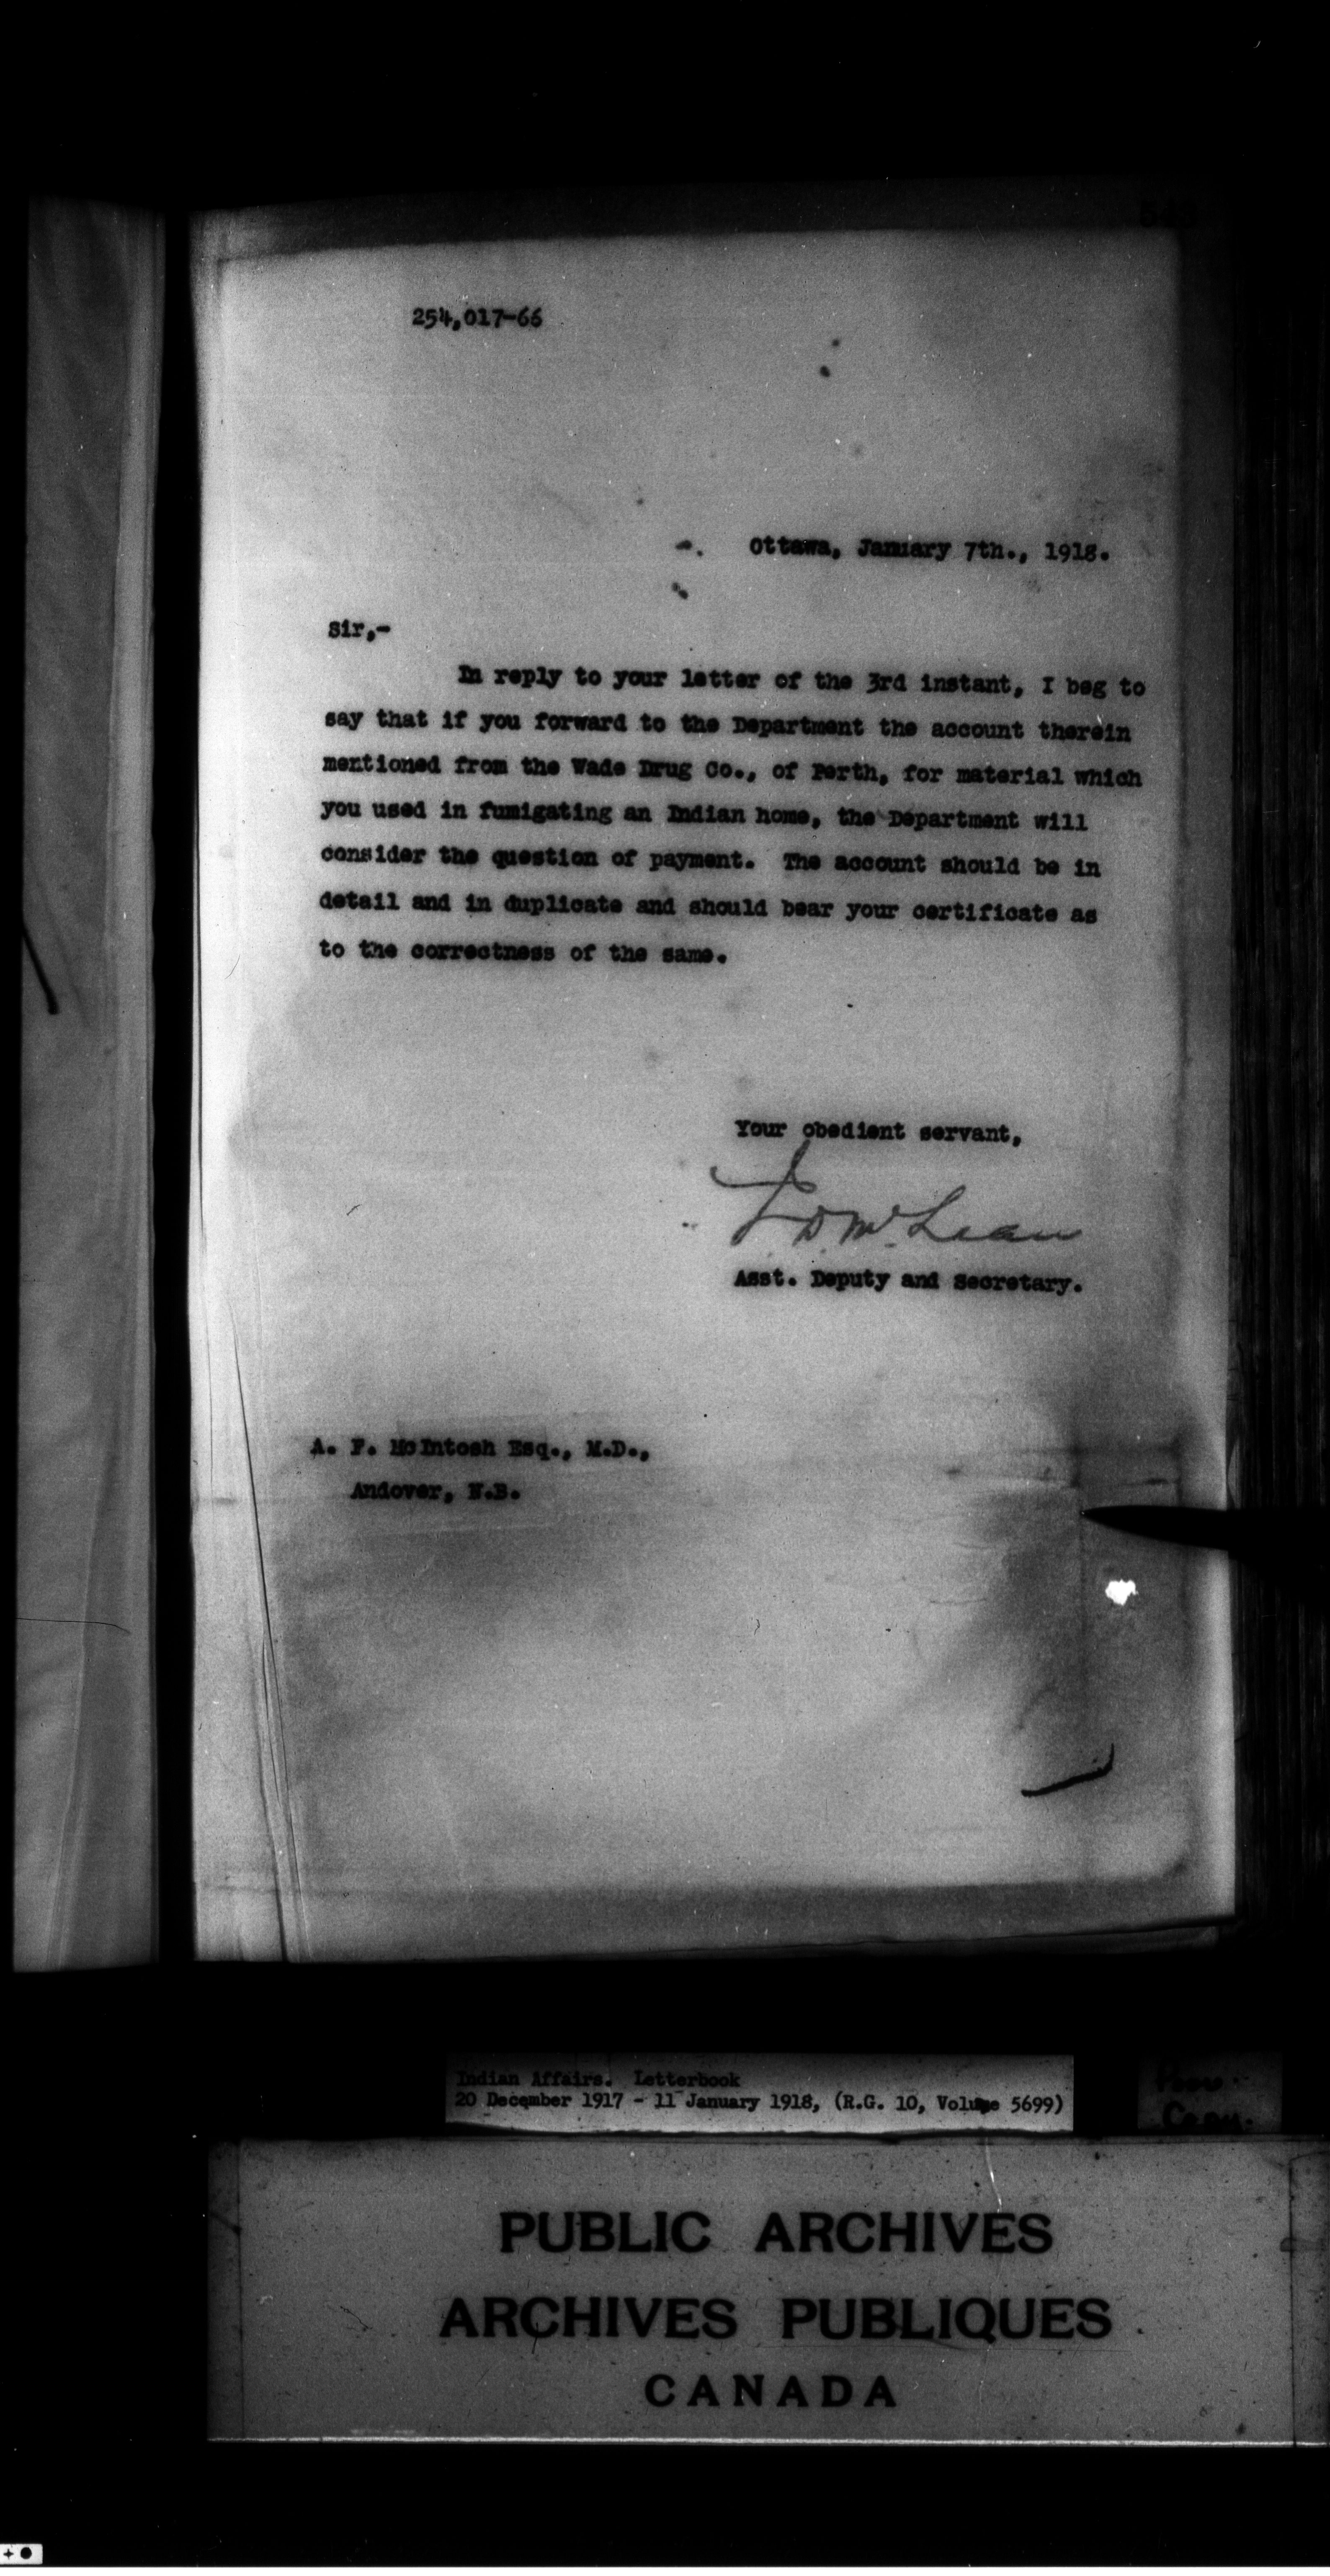 254,017-66
Ottawa, January 7th., 1918.
Sir,-
In reply to your letter of the 3rd instant, I beg to
say that if you forward to the Department the account therein
mentioned from the Wade Drug Co., of Perth, for material which
you used in fumigating an Indian home, the Department will
consider the question of payment. The account should be in
detail and in duplicate and should bear your certificate as
to the correctness of the same.
Your obedient servant,
J D McLean
Asst. Deputy and Secretary.
A. F. McIntosh Esq., M.D.,
Andover, N.B.
Indian Affairs. Letterbook
20 December 1917 - 11 January 1918, (R.G. 10, Volume 5699)
PUBLIC ARCHIVES
ARCHIVES PUBLIQUES
CANADA